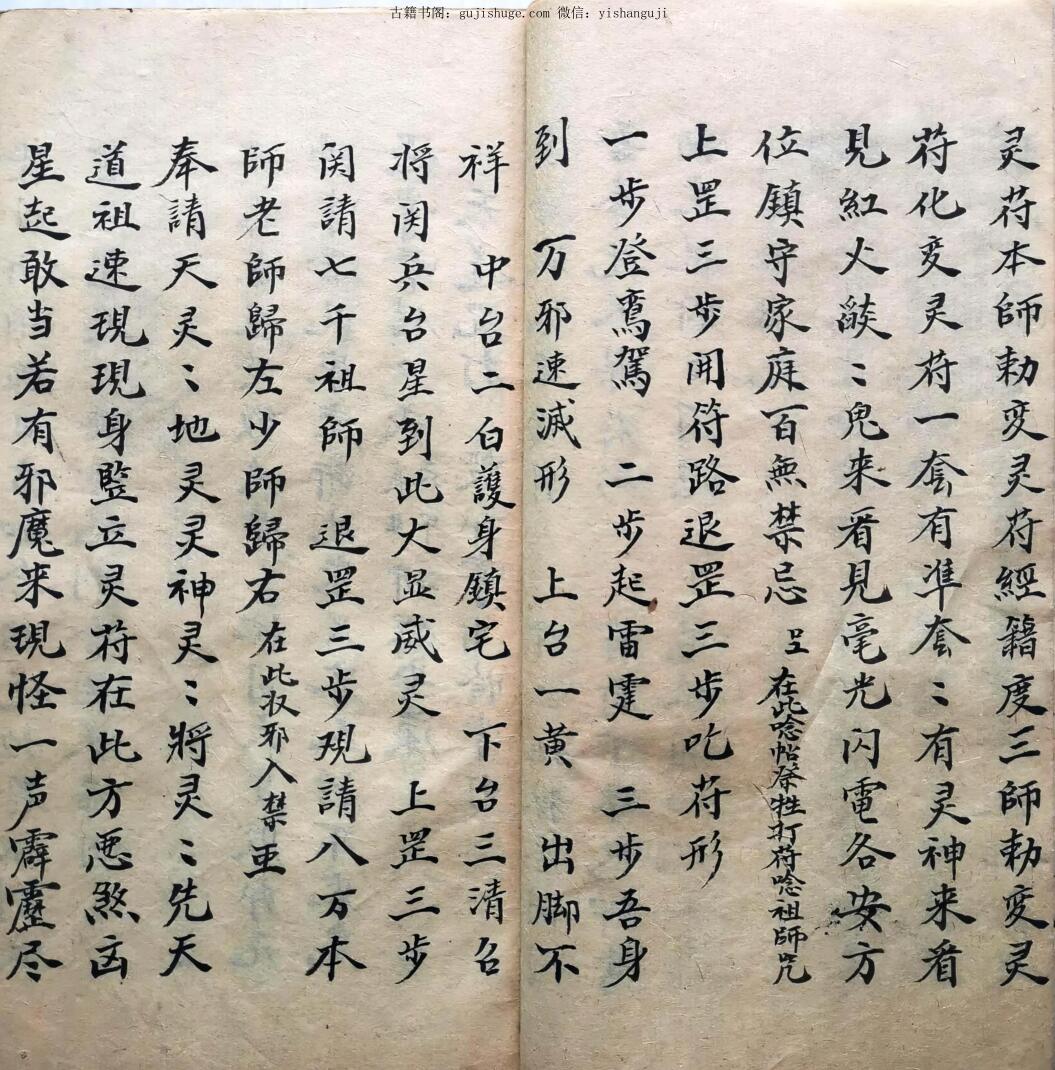 古籍书阁：gujishuge.com 微信：yishanguji
灵苻本師勅变灵苻經籍度三師勅变灵
苻化变灵苻一套有准套〻有灵神来看
見紅火燄〻鬼来看見毫光闪電各安方
位鎮守家庭百無禁忌 在此唸帖祭牲打苻唸祖師咒
上罡三步開符路退罡三步吃苻形
一步登鸞駕 二步起雷霆 三步吾身
到 万邪速滅形 上台一黄 出脚不
祥 中台二白護身鎮宅 下台三清召
将関兵台星到此大显威灵 上罡三步
関請七千祖師 退罡三步現請八万本
師老師歸左少師歸右 在此収邪入禁
奉請天灵〻地灵灵神灵〻將灵〻先天
道祖速現現身監立灵符在此方悪煞凶
星起敢当若有邪魔来現怪一声霹靂尽